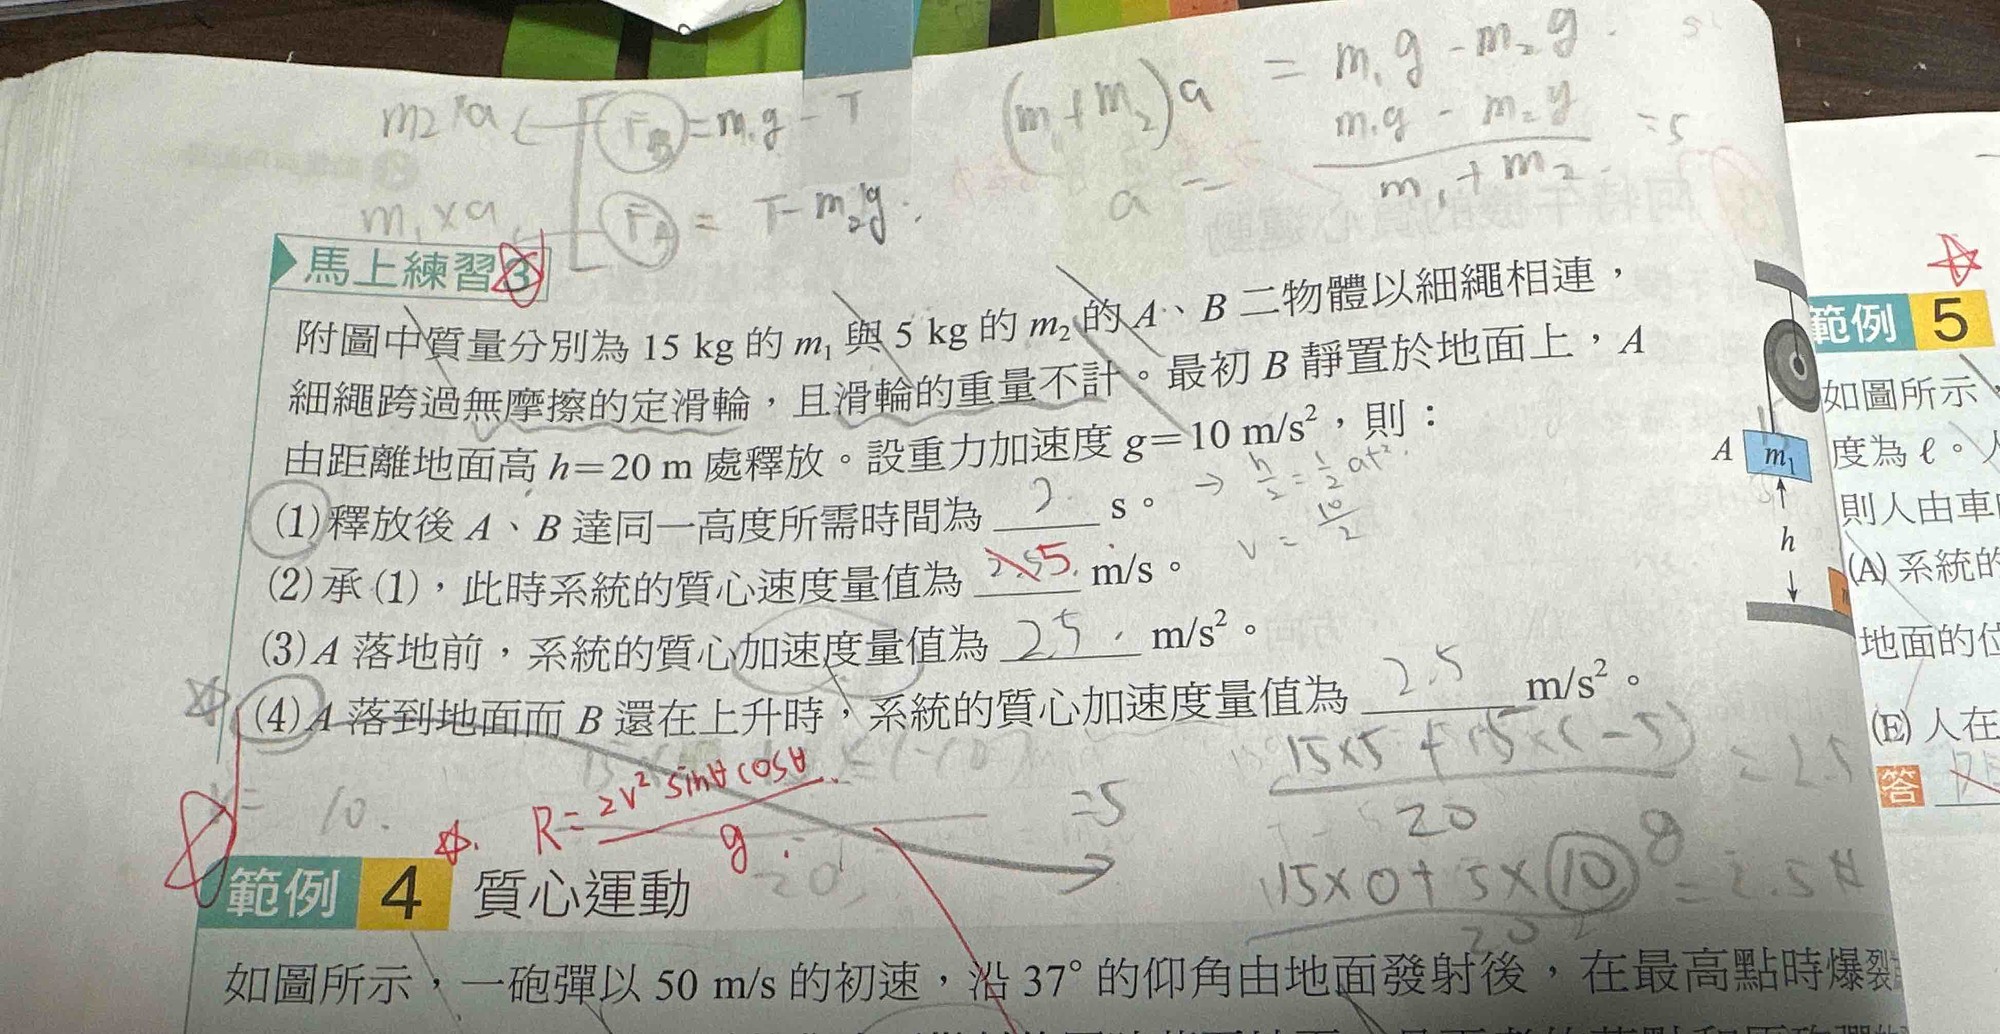 (m₁+m₂)a = m₁g-m₂g.
m₂×a ← F_B = m₁g-T
a = (m₁g-m₂g)/(m₁+m₂) =5
m₁×a ← F_A = T-m₂g.
馬上練習3
附圖中質量分別為 15 kg 的 m₁ 與 5 kg 的 m₂ 的 A、B 二物體以細繩相連,
細繩跨過無摩擦的定滑輪,且滑輪的重量不計。最初 B 靜置於地面上,A
由距離地面高 h=20 m 處釋放。設重力加速度 g=10 m/s²,則:
→ h/2 = 1/2 at².
(1)釋放後 A、B 達同一高度所需時間為 2. s。
v = 10/2
(2)承(1),此時系統的質心速度量值為 5. m/s。
(3)A 落地前,系統的質心加速度量值為 2.5. m/s²。
(4)A 落到地面而 B 還在上升時,系統的質心加速度量值為 2.5 m/s²。
A m₁
h
(15×5+5×(-5))/20 = 2.5
10.
R=2v²sinθcosθ/g.
=5
20
(15×0+5×10)/20 = 2.5
g
範例 4 質心運動
如圖所示,一砲彈以 50 m/s 的初速,沿 37° 的仰角由地面發射後,在最高點時爆裂
範例 5
如圖所示,
度為 ℓ。人
則人由車
(A)系統的
地面的位
(E)人在
答